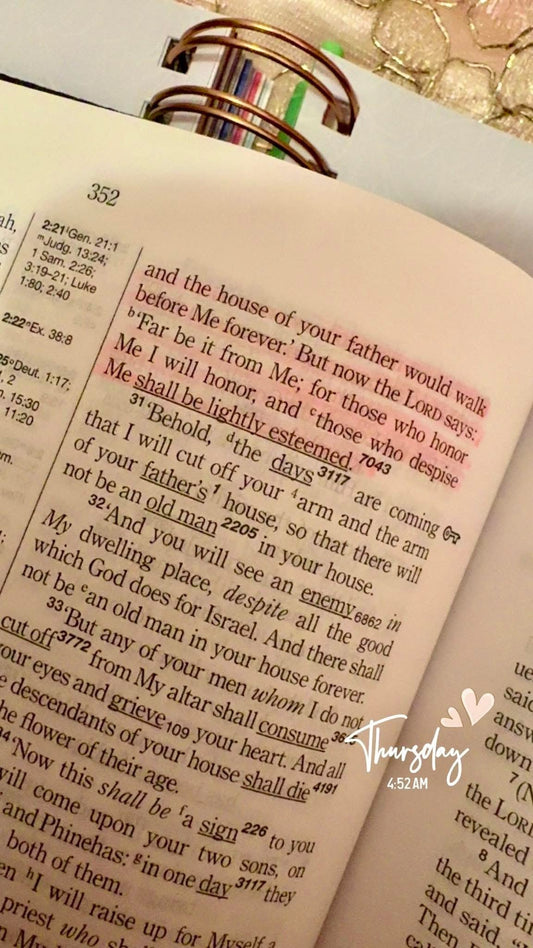 352
ah,
2:21 lGen. 21:1
mJudg. 13:24;
1 Sam. 2:26;
3:19–21; Luke
1:80; 2:40
2:22 oEx. 38:8
25 oDeut. 1:17;
, 2
15:30
11:20
em.
and the house of your father would walk
before Me forever.' But now the LORD says:
b'Far be it from Me; for those who honor
Me I will honor, and cthose who despise
Me shall be lightly esteemed.7043
31 'Behold, dthe days3117 are coming
that I will cut off your 4arm and the arm
of your father's1 house, so that there will
not be an old man2205 in your house.
32 'And you will see an enemy6862 in
My dwelling place, despite all the good
which God does for Israel. And there shall
not be ean old man in your house forever.
33 'But any of your men whom I do not
cut off3772 from My altar shall consume
your eyes and grieve109 your heart. And all
e descendants of your house shall die4191
he flower of their age.
34 'Now this shall be fa sign226 to you
will come upon your two sons, on
and Phinehas: gin one day3117 they
both of them.
en hI will raise up for Myself a
priest who
Thursday
4:52 AM
ue
said
answ
down
7 (N
the LORD
revealed
8 And
the third tim
and said,
Then